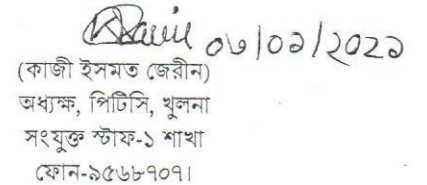 ০৬/০১/২০২১
(কাজী ইসমত জেরীন)
অধ্যক্ষ, পিটিসি, খুলনা
সংযুক্ত স্টাফ-১ শাখা
ফোন-৯৫৬৮৭০৭।